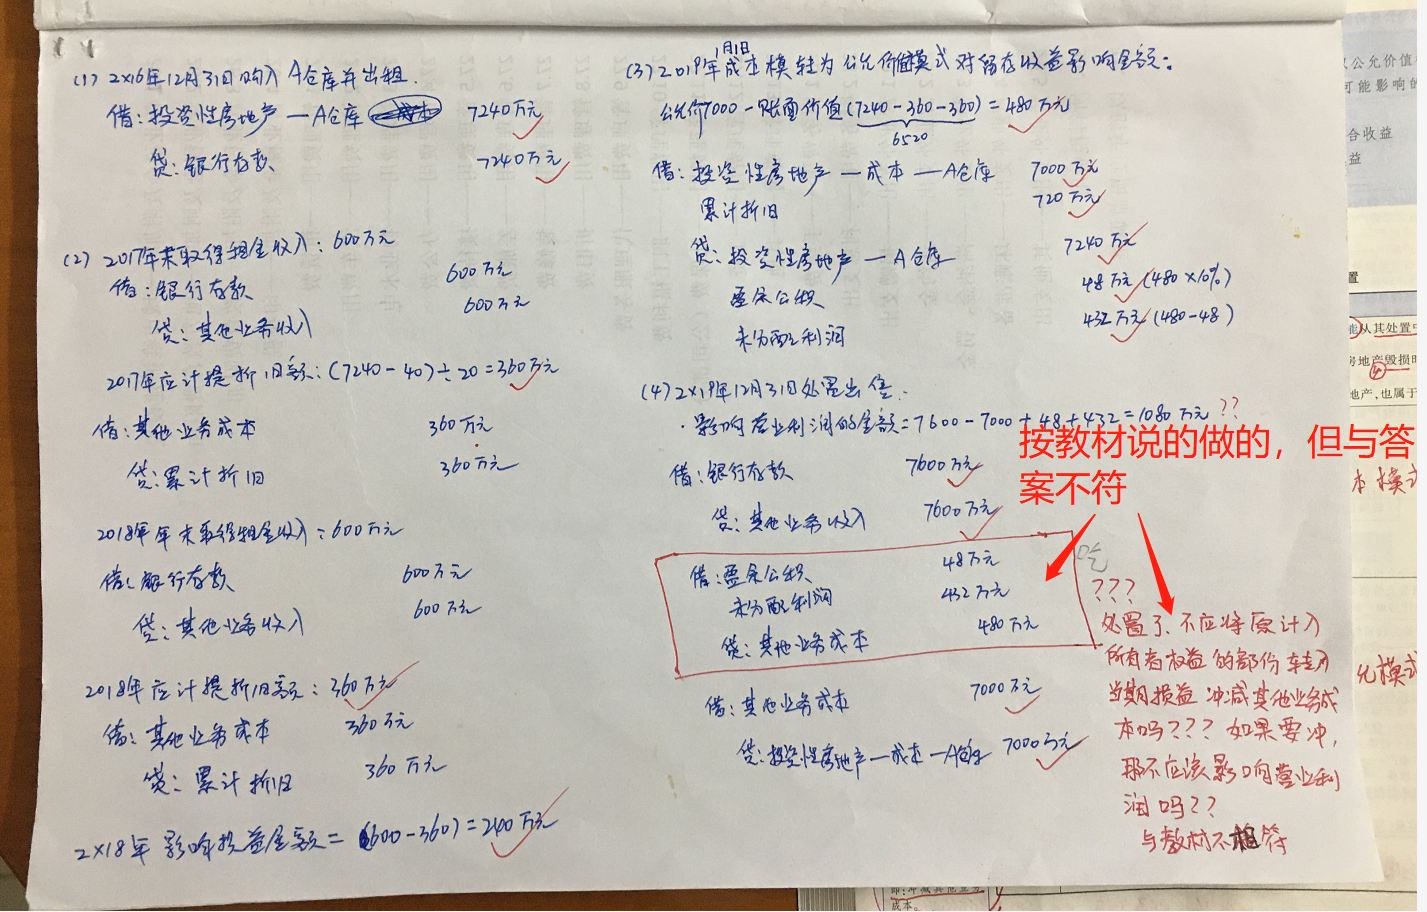 (1) 2×16年12月31日购入A仓库并出租.
借:投资性房地产 — A仓库 7240万元
贷:银行存款 7240万元
(2) 2017年末取得租金收入:600万元
借:银行存款 600万元
贷:其他业务收入 600万元
2017年应计提折旧额:(7240-40)÷20=360万元
借:其他业务成本 360万元
贷:累计折旧 360万元
2018年年末取得租金收入:600万元
借:银行存款 600万元
贷:其他业务收入 600万元
2018年应计提折旧额:360万元
借:其他业务成本 360万元
贷:累计折旧 360万元
2×18年影响损益金额=(600-360)=240万元
1月1日
(3) 2019年成本模转为公允价值模式对留存收益影响金额:
公允价7000-账面价值(7240-360-360)=480万元
6520
借:投资性房地产 — 成本 — A仓库 7000万元
累计折旧 720万元
贷:投资性房地产 — A仓库 7240万元
盈余公积 48万元(480×10%)
未分配利润 432万元(480-48)
(4) 2×19年12月31日处置出售.
·影响营业利润的金额=7600-7000+48+432=1080万元??
借:银行存款 7600万元
贷:其他业务收入 7600万元
借:盈余公积 48万元
未分配利润 432万元
贷:其他业务成本 480万元
借:其他业务成本 7000万元
贷:投资性房地产—成本—A仓库 7000万元
按教材说的做的，但与答
案不符
???
处置了、不应将原计入
所有者权益的部份转入
当期损益冲减其他业务成
本吗???如果要冲,
那不应该影响营业利
润吗??
与教材不相符
公允价值
可能影响的
合收益
益
本模式
置
能从其处置
房地产毁损
地产,也属于
允模式
即:冲减其他业务
成本。